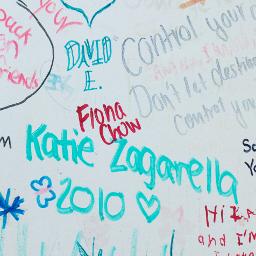 your
back
on
friends
DAVID
E.
Control your d
Don't let destin
control you
Fiona
Chow
Katie Zagarella
2010
Hi I
and I'm